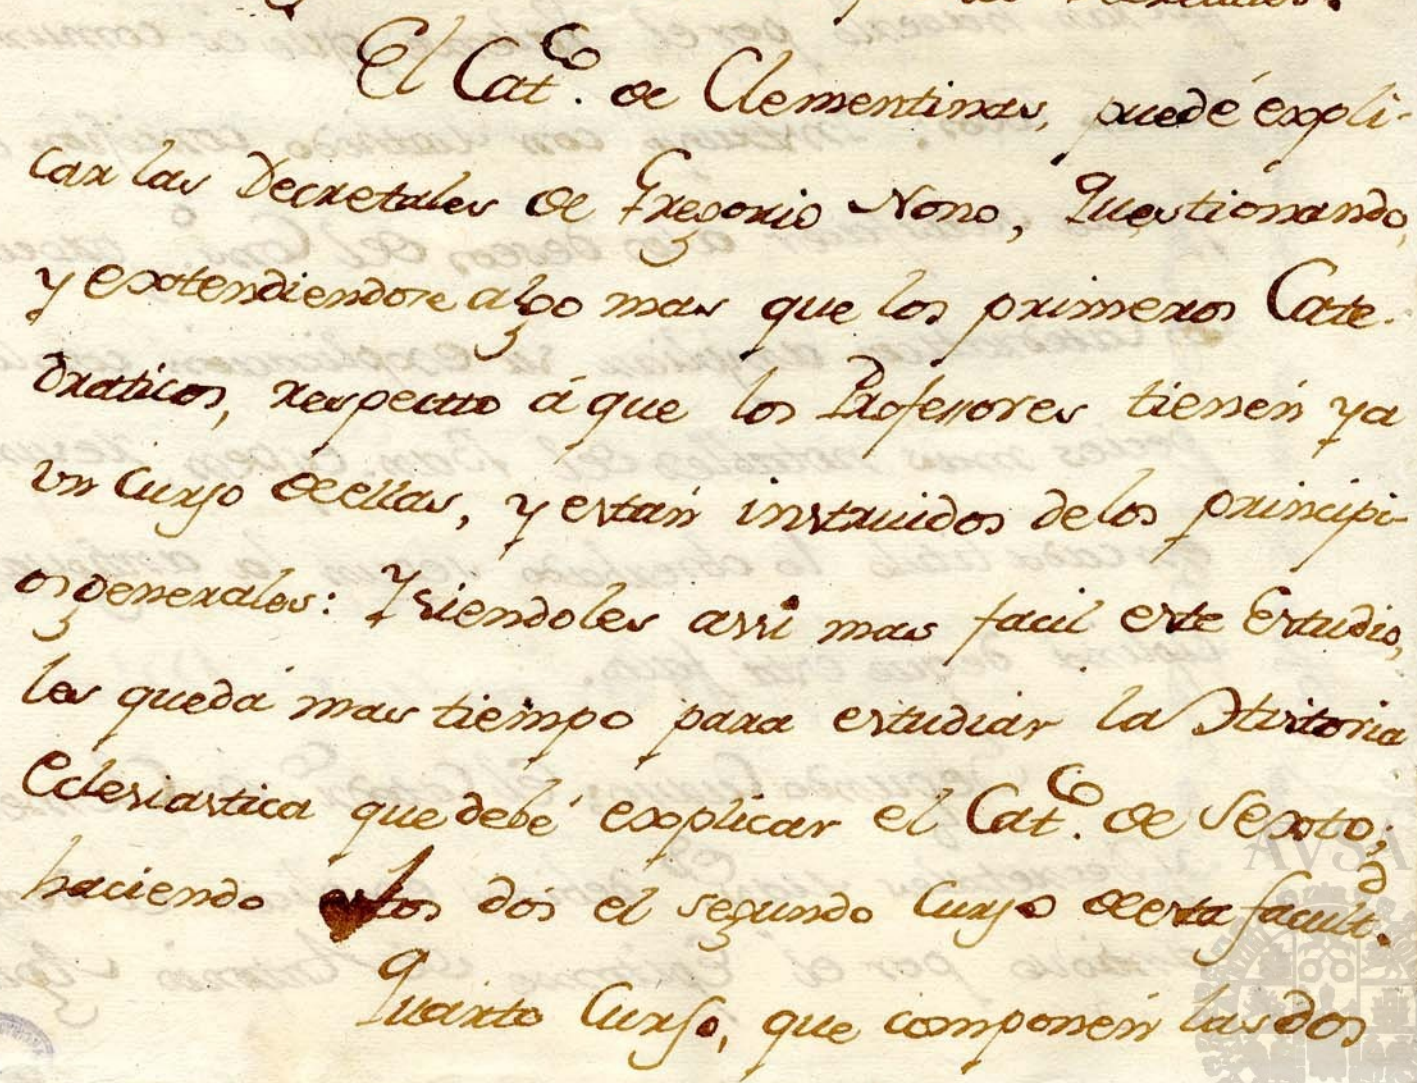 El Cat.co de Clementinas, puedé expli-
car las Decretales de Gregorio Nono, Questionando,
y extendiendose algo mas que los primeros Cate-
draticos, respecto á que los Profesores tienen ya
un Curso de ellas, y están instruidos de los principi-
os generales: Y siendoles assi mas facil este Estudio,
les queda mas tiempo para estudiar la Historia
Eclesiastica que debé explicar el Cat.co de Sexto;
haciendo estos dos el segundo Curso de esta facult.d
Quarto Curso, que componen las dos
AVSA